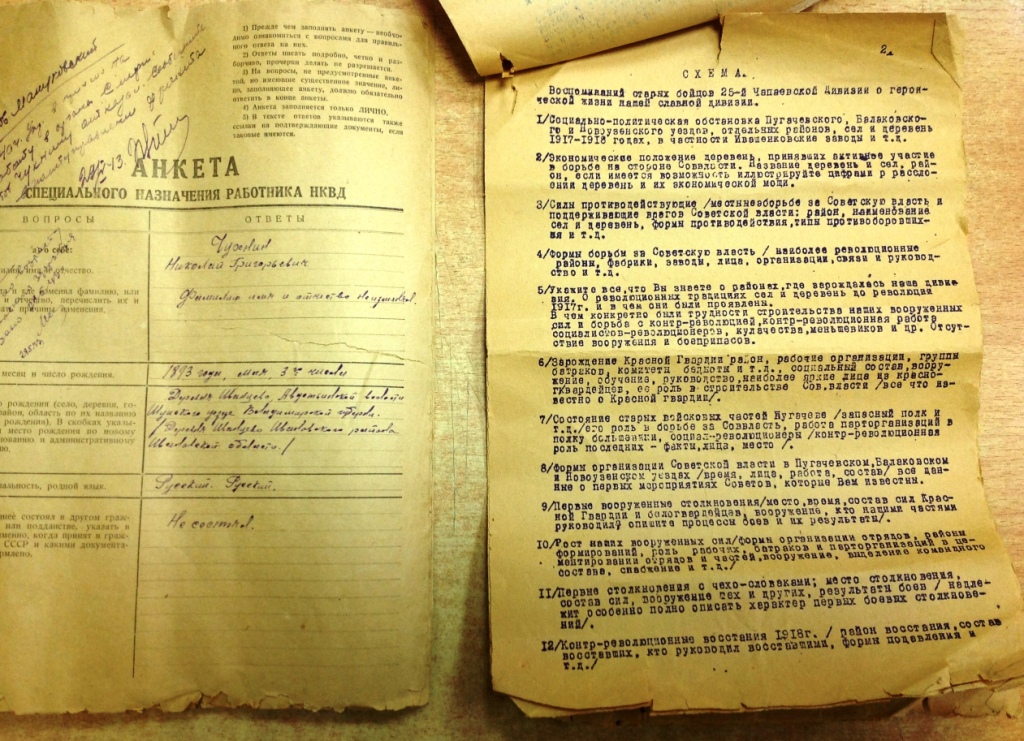 1) Прежде чем заполнять анкету — необхо-
димо ознакомиться с вопросами для правиль-
ного ответа на них.
2) Ответы писать подробно, четко и раз-
борчиво, прочерки делать не разрешается.
3) На вопросы, не предусмотренные анке-
той, но имеющие существенное значение, ли-
цо, заполняющее анкету, должно обязательно
ответить в конце анкеты.
4) Анкета заполняется только ЛИЧНО.
5) В тексте ответов указываются также
ссылки на подтверждающие документы, если
таковые имеются.
АНКЕТА
СПЕЦИАЛЬНОГО НАЗНАЧЕНИЯ РАБОТНИКА НКВД
ВОПРОСЫ
ОТВЕТЫ
имя, отчество.
Николай Григорьевич
да и где изменял фамилию, или
и отчество, перечислить их и
причины изменения.
Фамилию имя и отчество не изменял.
месяц и число рождения.
1893 года, мая 3го числа
рождения (село, деревня, го-
район, область по их названию
рождения). В скобках указы-
место рождения по новому
и административному
Деревня
Шуйского уезда Владимирской губернии.
Ивановского района
Ивановской области/
родной язык.
Русский. Русский.
нее состоял в другом граж-
или подданстве, указать в
именно, когда принят в граж-
СССР и какими документа-
Не состоял.
2.
СХЕМА.
Воспоминаний старых бойцов 25-й Чапаевской Дивизии о герои-
ческой жизни нашей славной дивизии.
1/Социально-политическая обстановка Пугачевского, Балаковско-
го и Новоузенского уездов, отдельных районов, сел и деревень
1917-1918 годах, в частности Иващенковские заводы и т.д.
2/Экономическое положение деревень, принявших активное участие
в борьбе на стороне Соввласти. Название деревень и сел, рай-
он, если имеется возможность иллюстрируйте цифрами р расслое-
нии деревень и их экономической мощи.
3/Силы противодействующие /местные борьбе за Советскую власть и
поддерживающие врагов Советской власти: район, наименование
сел и деревень, формы противодействия, типы противоборовших-
ся и т.д.
4/Формы борьбы за Советскую власть / наиболее революционные
районы, фабрики, заводы, лица, организации, связи и руковод-
ство и т.д.
5/Укажите все, что Вы знаете о районех, где зарождалась наша диви-
зия. О революционных традициях сел и деревень до революции
1917г. и в чем они были проявлены.
В чем конкретно были трудности строительства наших вооруженных
сил и борьба с контр-революцией, контр-революционная работа
социалистов-революционеров, кулачества, меньшевиков и др. Отсут-
ствие вооружения и боеприпасов.
6/Зарождение Красной Гвардии район, рабочие организации, группы
батраков, комитеты бедноты и т.д., социальный состав, воору-
жение, обучение, руководство, наиболее яркие лица из красно-
гвардейцев, ее роль в строительстве Сов.власти /все что из-
вестно о Красной гвардии/.
7/Состояние старых войсковых частей Пугачеве /запасный полк и
т.д./его роль в борьбе за Соввласть, работа парторганизаций в
полку большевики, социал-революционеры /контр-революционная
роль последних - факты, лица, место /.
8/Формы организации Советской власти в Пугачевском, Балаковском
и Новоузенском уездах /время, лица, работа, состав/ все дан-
ные о первых мероприятиях Советов, которые Вам известны.
9/Первые вооруженные столкновения/место, время, состав сил Крас-
ной Гвардии и белогвардейцев, вооружение, кто нашими частями
руководил, опишите процессы боев и их результаты/.
10/Рост наших вооруженных сил/формы организации отрядов, районы
формирований, роль рабочих, батраков и парторганизаций в це-
ментировании отрядов и частей, вооружение, выделение командного
состава, снабжение и т.д./
11/Первые столкновения с чехо-словаками; место столкновения,
состав сил, вооружение тех и других, результаты боев / надле-
жит особенно полно описать характер первых боевых столкнове-
ний/.
12/Контр-революционные восстания 1918г. / район восстания, состав
восставших, кто руководил восставшими, формы подавления и
т.д./